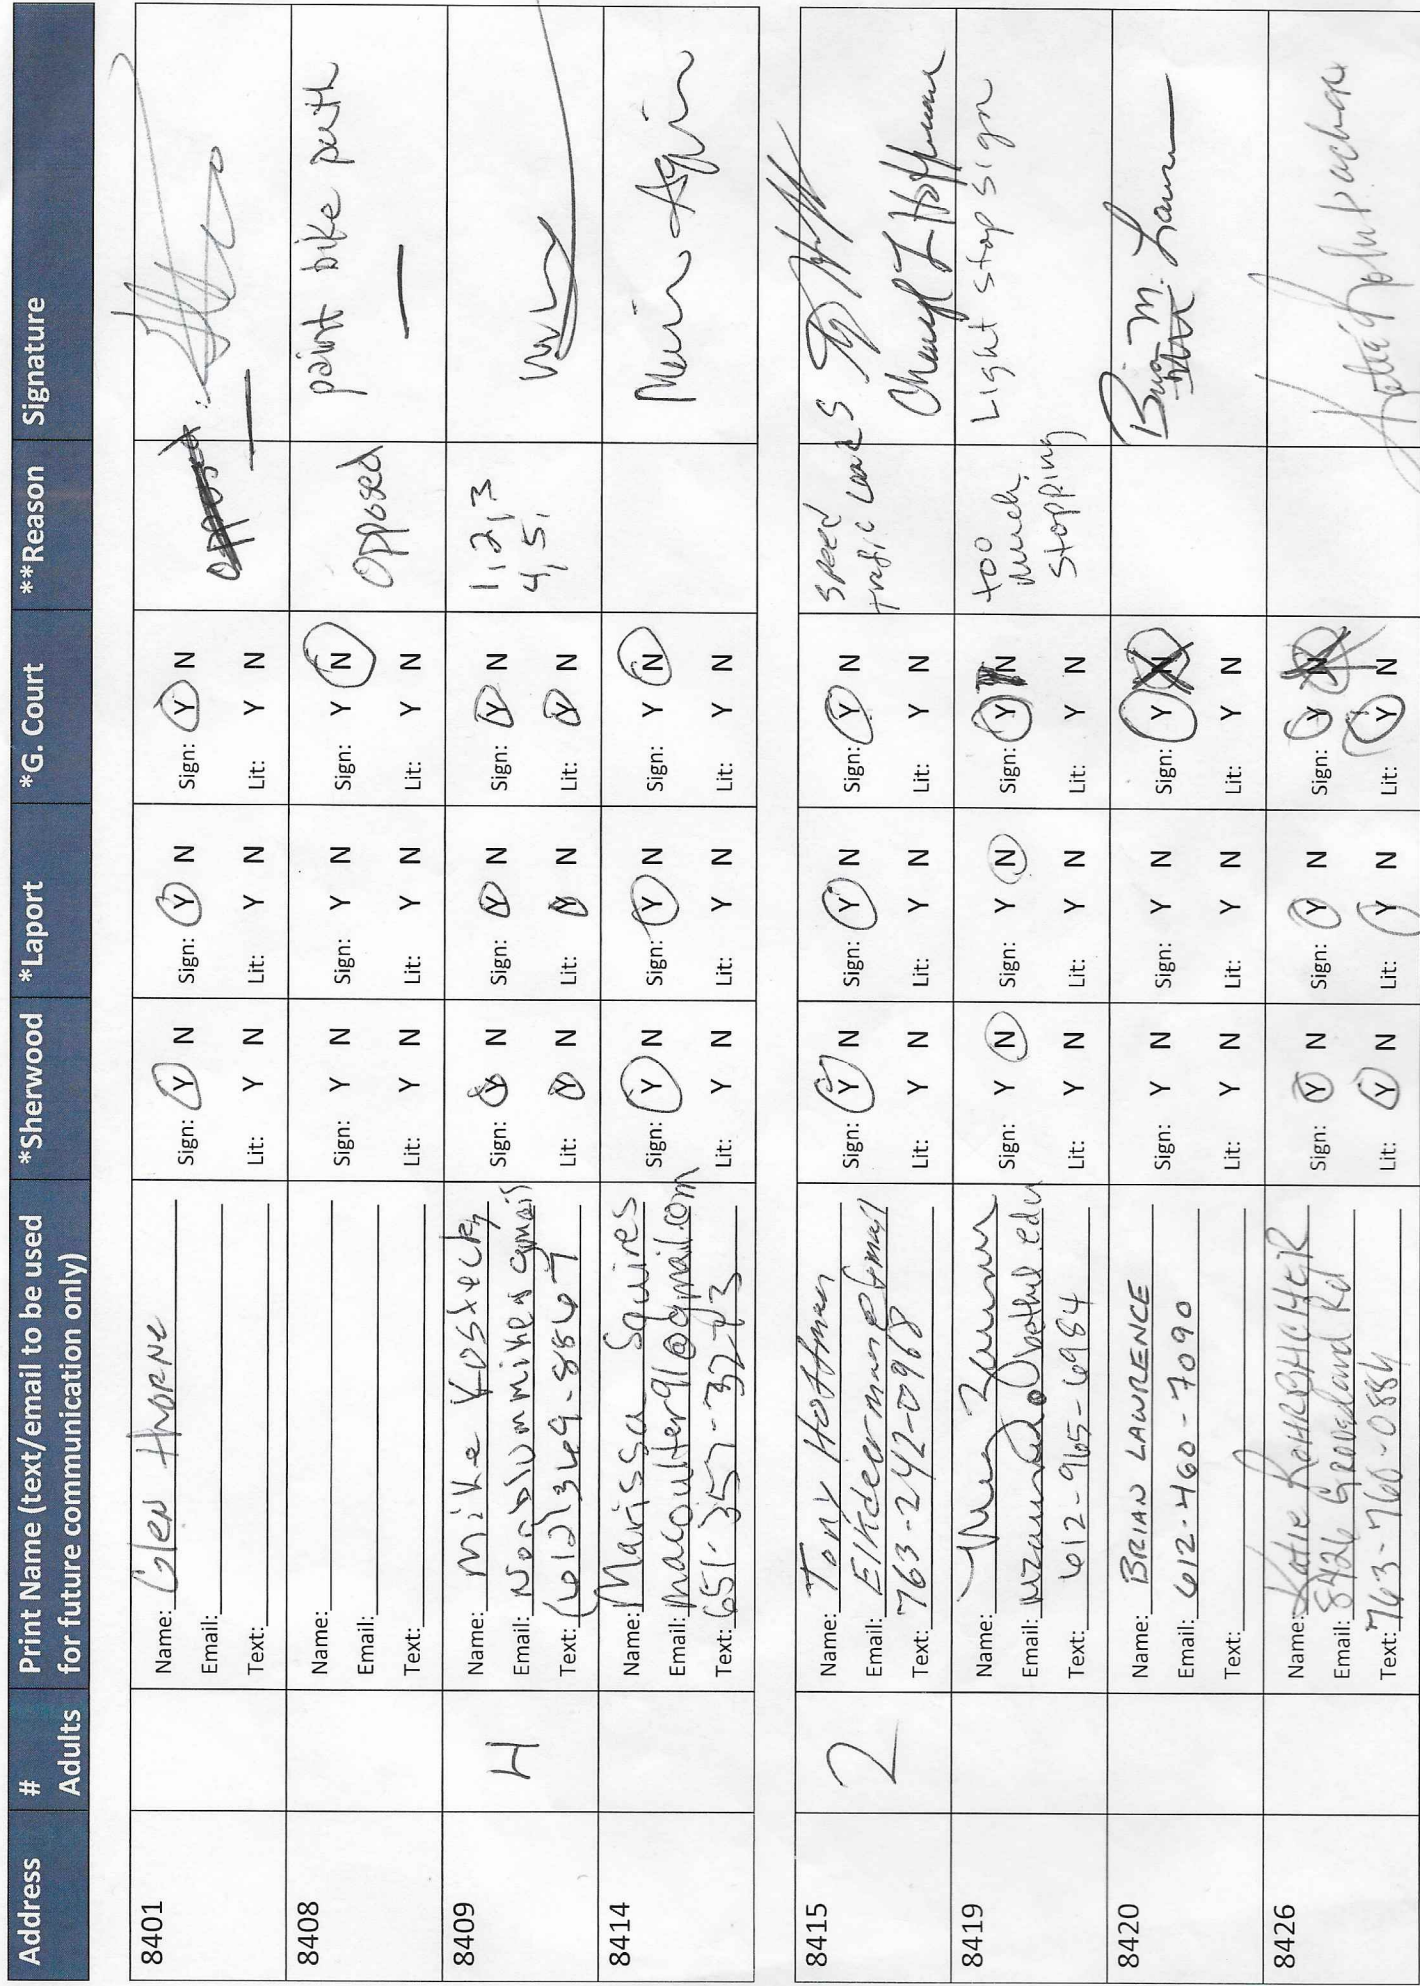 Address # Adults Print Name (text/email to be used for future communication only) *Sherwood *Laport *G. Court **Reason Signature
8401
Name: Glen Thorne
Email:
Text:
Sign: Y N
Lit: Y N
Sign: Y N
Lit: Y N
Sign: Y N
Lit: Y N
opposed
8408
Name:
Email:
Text:
Sign: Y N
Lit: Y N
Sign: Y N
Lit: Y N
Sign: Y N
Lit: Y N
opposed
paint bike path
8409
4
Name: Mike
Email:
Text:
Sign: Y N
Lit: Y N
Sign: Y N
Lit: Y N
Sign: Y N
Lit: Y N
1, 2, 3
4, 5,
8414
Name: Marissa Squires
Email: macoulter91@gmail.com
Text: 651-357-3293
Sign: Y N
Lit: Y N
Sign: Y N
Lit: Y N
Sign: Y N
Lit: Y N
8415
2
Name: Tony Hoffman
Email:
Text: 763-242-0968
Sign: Y N
Lit: Y N
Sign: Y N
Lit: Y N
Sign: Y N
Lit: Y N
speed
Cheryl L Hoffman
8419
Name:
Email:
Text: 612-965-6984
Sign: Y N
Lit: Y N
Sign: Y N
Lit: Y N
Sign: Y N
Lit: Y N
too
much
stopping
Light stop sign
8420
Name: BRIAN LAWRENCE
Email: 612-460-7090
Text:
Sign: Y N
Lit: Y N
Sign: Y N
Lit: Y N
Sign: Y N
Lit: Y N
Brian M.
8426
Name: Katie ROHRBACHER
Email: 8426 Groveland Rd
Text: 763-760-0884
Sign: Y N
Lit: Y N
Sign: Y N
Lit: Y N
Sign: Y N
Lit: Y N
Katie Rohrbacher